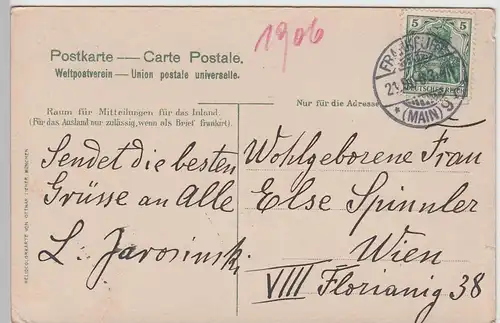 1906
5 5
DEUTSCHES REICH
FRANKFURT
(MAIN) 9
Postkarte — Carte Postale.
Weltpostverein — Union postale universelle.
Raum für Mitteilungen für das Inland.
(Für das Ausland nur zulässig, wenn als Brief frankirt).
Nur für die Adresse
Sendet die besten
Grüsse an Alle
L. Jarosinski
Wohlgeborene Frau
Else Spinnler
Wien
VIII Florianig 38
HELIOCOLORKARTE VON OTTMAR ZIEHER, MÜNCHEN